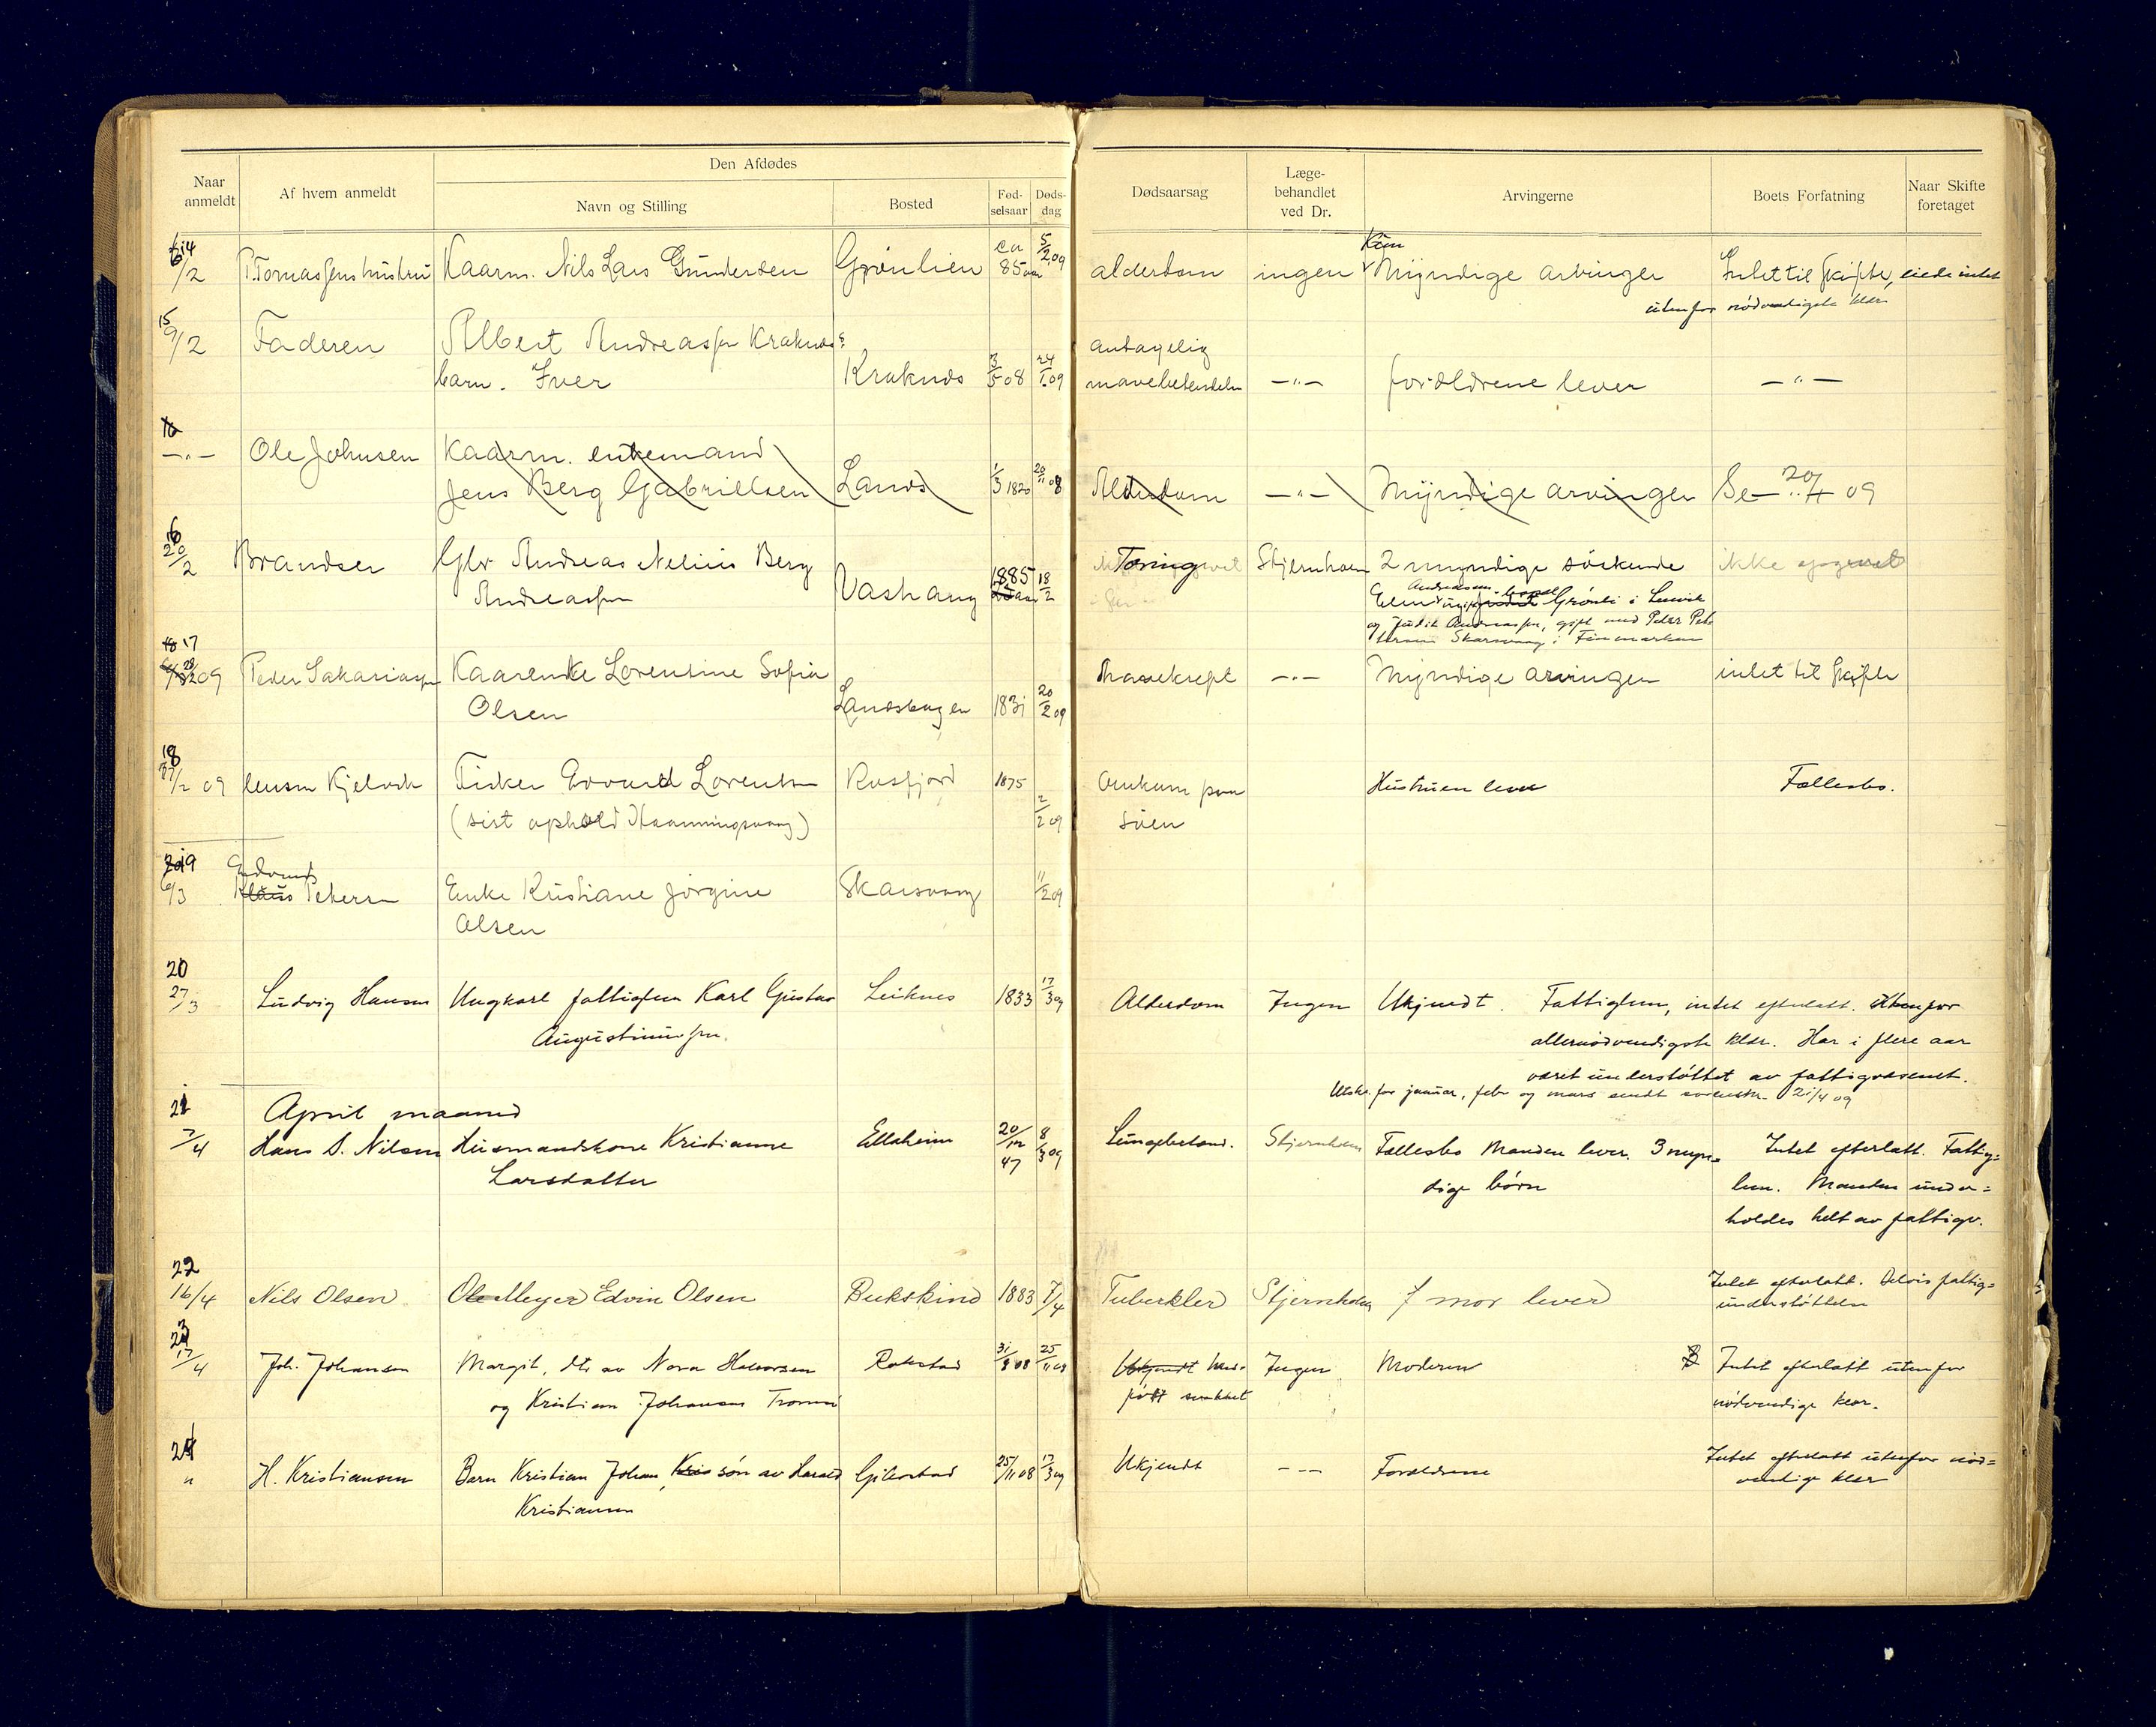 Naar anmeldt
Af hvem anmeldt
Den Afdødes
Navn og Stilling
Bosted
Fød-selsaar
Døds-dag
Dødsaarsag
Læge-behandlet ved Dr.
Arvingerne
Boets Forfatning
Naar Skifte foretaget
14
6/2 P. Tomassens hustru Kaarm. Nils Lars Gundersen Grønlien ca 85 aar 5/2 09 alderdom ingen Kun Myndige arvinger Intet til skifte, eiede intet
utenfor nødvendigste klær
15
9/2 Faderen Albert Andreassen Kraknæs antagelig
barn. Iver Kraknes 3/5 08 24/1 09 mavebetendelse —"— forældrene lever —"—
16
—"— Ole Johnsen Kaarm. enkemand
Jens Berg Gabrielsen Lanes 1/3 1820 20/11 08 Alderdom —"— Myndige arvinger Se 20/4 09
16
20/2 Brandser Glv Andreas Nelius Berg Tæring Stjernholm 2 myndige søskende ikke opgivet
Andreassen Vashaug 1885 18/2
Grønli i Lenvik
og Judit Andreassen, gift med Peter Pet
Skarsvaag i Finmarken
18 17
28/2 09 Peder Sakariassen Kaarenke Lorensine Sofia Mavekreft —"— Myndige arvinger intet til skifte
Olsen 1831 20/2 09
18
27/2 09 Fisker Edvard Lorentsen Rosfjord 1875 Omkom paa Hustruen lever Fællesbo.
(sist ophold Honningsvaag) 2/2 09 søen
19
6/3 Edvard Klaus Petersen Enke Kristiane Jørgine Skarsvaag 11/2 09
Olsen
20
27/3 Ludvig Hansen Ungkarl fattiglem Karl Gustav Leiknes 1833 17/3 09 Alderdom Ingen Ukjendt. Fattiglem, intet efterlatt. Utenfor
Augustinussen. allernødvendigste klær. Har i flere aar
været understøttet av fattigvæsenet.
Utskr. for januar, febr og mars sendt sorenskr. 21/4 09
21 April maaned
7/4 Hans S. Nilsen Husmandskone Kristianne Elleheim 20/12 47 8/3 09 Lungebetænd. Stjernholm Fællesbo Manden lever. 3 myn= Intet efterlatt. Fattig=
Larsdatter dige børn lem. Manden under=
holdes helt av fattigv.
22
16/4 Nils Olsen Ole Meyer Edvin Olsen Bukskind 1883 7/4 Tuberkler Stjernholm mor lever Intet efterlatt. Delvis fattig=
understøttelse
23
17/4 Joh. Johansen Margit, dtr av Nora Halvorsen Rokstad 31/8 08 25/11 08 Ukjendt Ingen Moderen Intet efterlatt utenfor
og Kristian Johansen Tromsø født svakket nødvendige klær.
24
" H. Kristiansen Barn Kristian Johan, Kris søn av Harald Gibostad 25/11 08 17/3 09 Ukjendt —"— Forældrene Intet efterlatt utenfor nød=
Kristiansen vendige klær